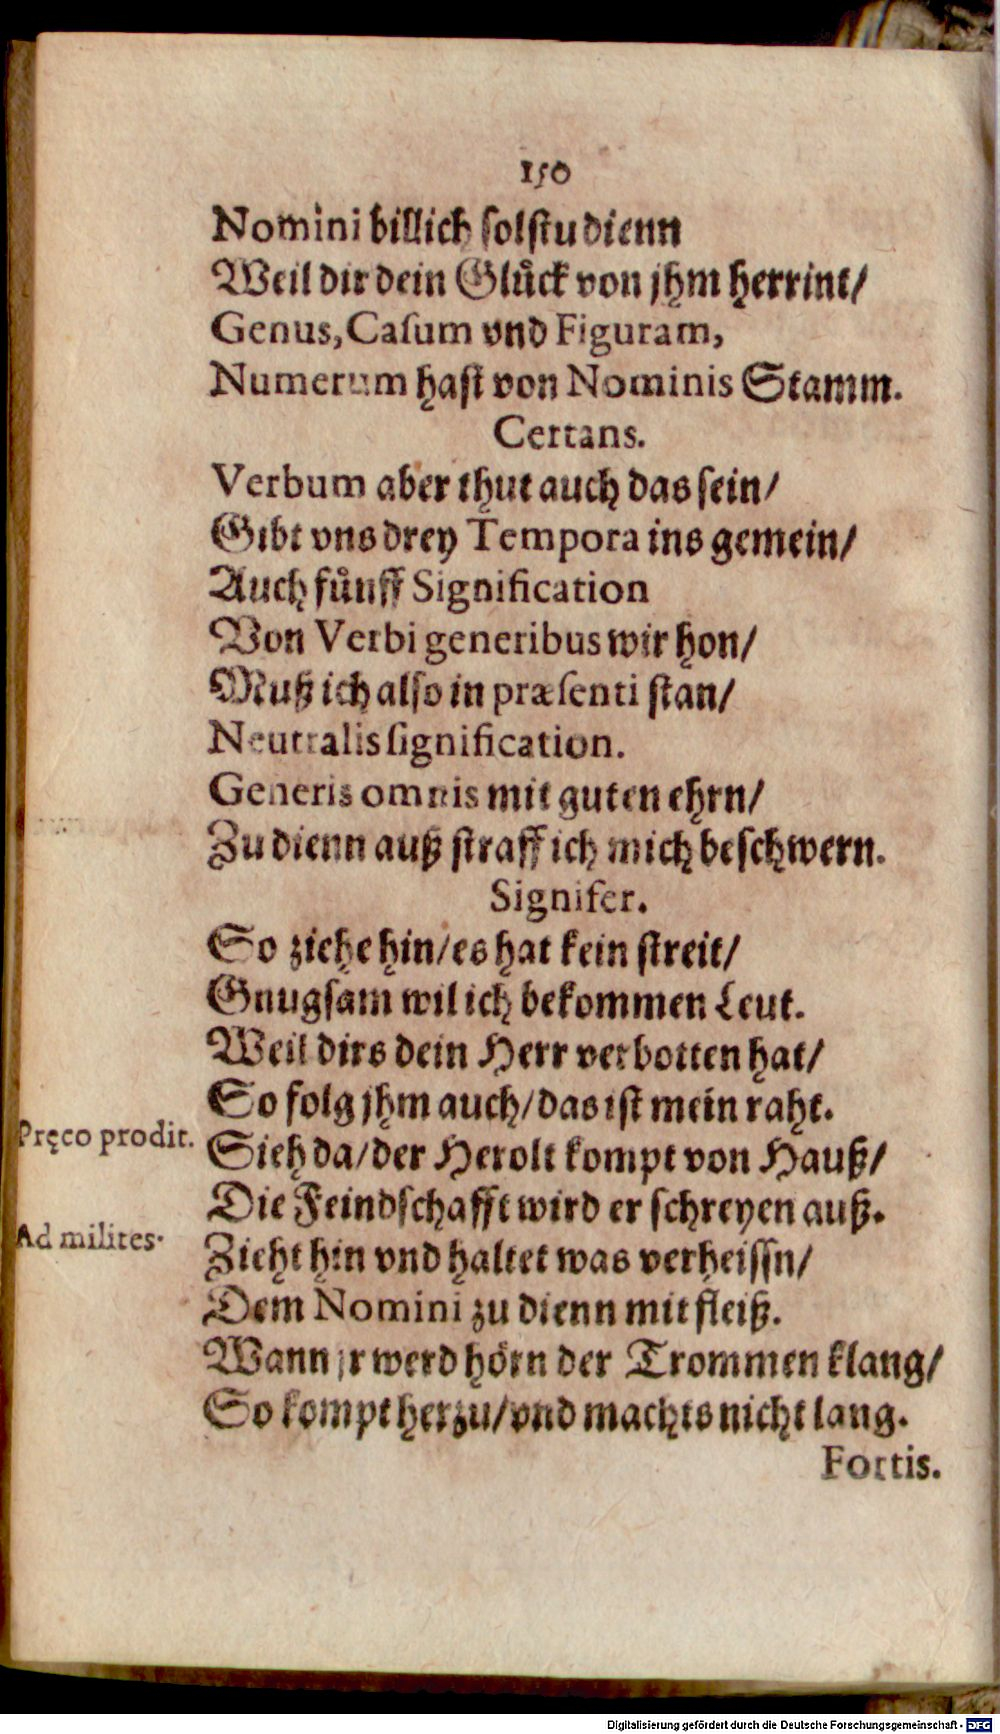 150
Nomini billich solstu dienn
Weil dir dein Glůck von jhm herrint/
Genus, Caſum vnd Figuram,
Numerum haſt von Nominis Stamm.
Certans.
Verbum aber thut auch das ſein/
Gibt vns drey Tempora ins gemein/
Auch fůnff Signification
Von Verbi generibus wir hon/
Muß ich alſo in præſenti ſtan/
Neutralis ſignification.
Generis omnis mit guten ehrn/
Zu dienn auß ſtraff ich mich beſchwern.
Signifer.
So ziehe hin/es hat kein ſtreit/
Gnugſam wil ich bekommen Leut.
Weil dirs dein Herr verbotten hat/
So folg jhm auch/das iſt mein raht.
Pręco prodit.
Sieh da/der Herolt kompt von Hauß/
Die Feindſchafft wird er ſchreyen auß.
Ad milites.
Zieht hin vnd haltet was verheiſſn/
Dem Nomini zu dienn mit fleiß.
Wann jr werd hörn der Trommen klang/
So kompt herzu/vnd machts nicht lang.
Fortis.
Digitalisierung gefördert durch die Deutsche Forschungsgemeinschaft - DFG